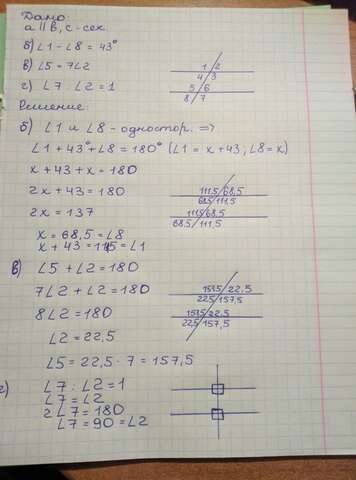 Дано:
a || b, c - сек.
б) ∠1 - ∠8 = 43°
в) ∠5 = 7∠2
г) ∠7 : ∠2 = 1
1 / 2
4 / 3
5 / 6
8 / 7
Решение:
б) ∠1 и ∠8 - одностор. =>
∠1 + 43° + ∠8 = 180° (∠1 = x + 43, ∠8 = x)
x + 43 + x = 180
2x + 43 = 180
2x = 137
x = 68,5 = ∠8
x + 43 = 115 = ∠1
111,5 / 68,5
68,5 / 111,5
111,5 / 68,5
68,5 / 111,5
в) ∠5 + ∠2 = 180
7∠2 + ∠2 = 180
8∠2 = 180
∠2 = 22,5
∠5 = 22,5 · 7 = 157,5
157,5 / 22,5
22,5 / 157,5
157,5 / 22,5
22,5 / 157,5
г) ∠7 : ∠2 = 1
∠7 = ∠2
2∠7 = 180
∠7 = 90 = ∠2